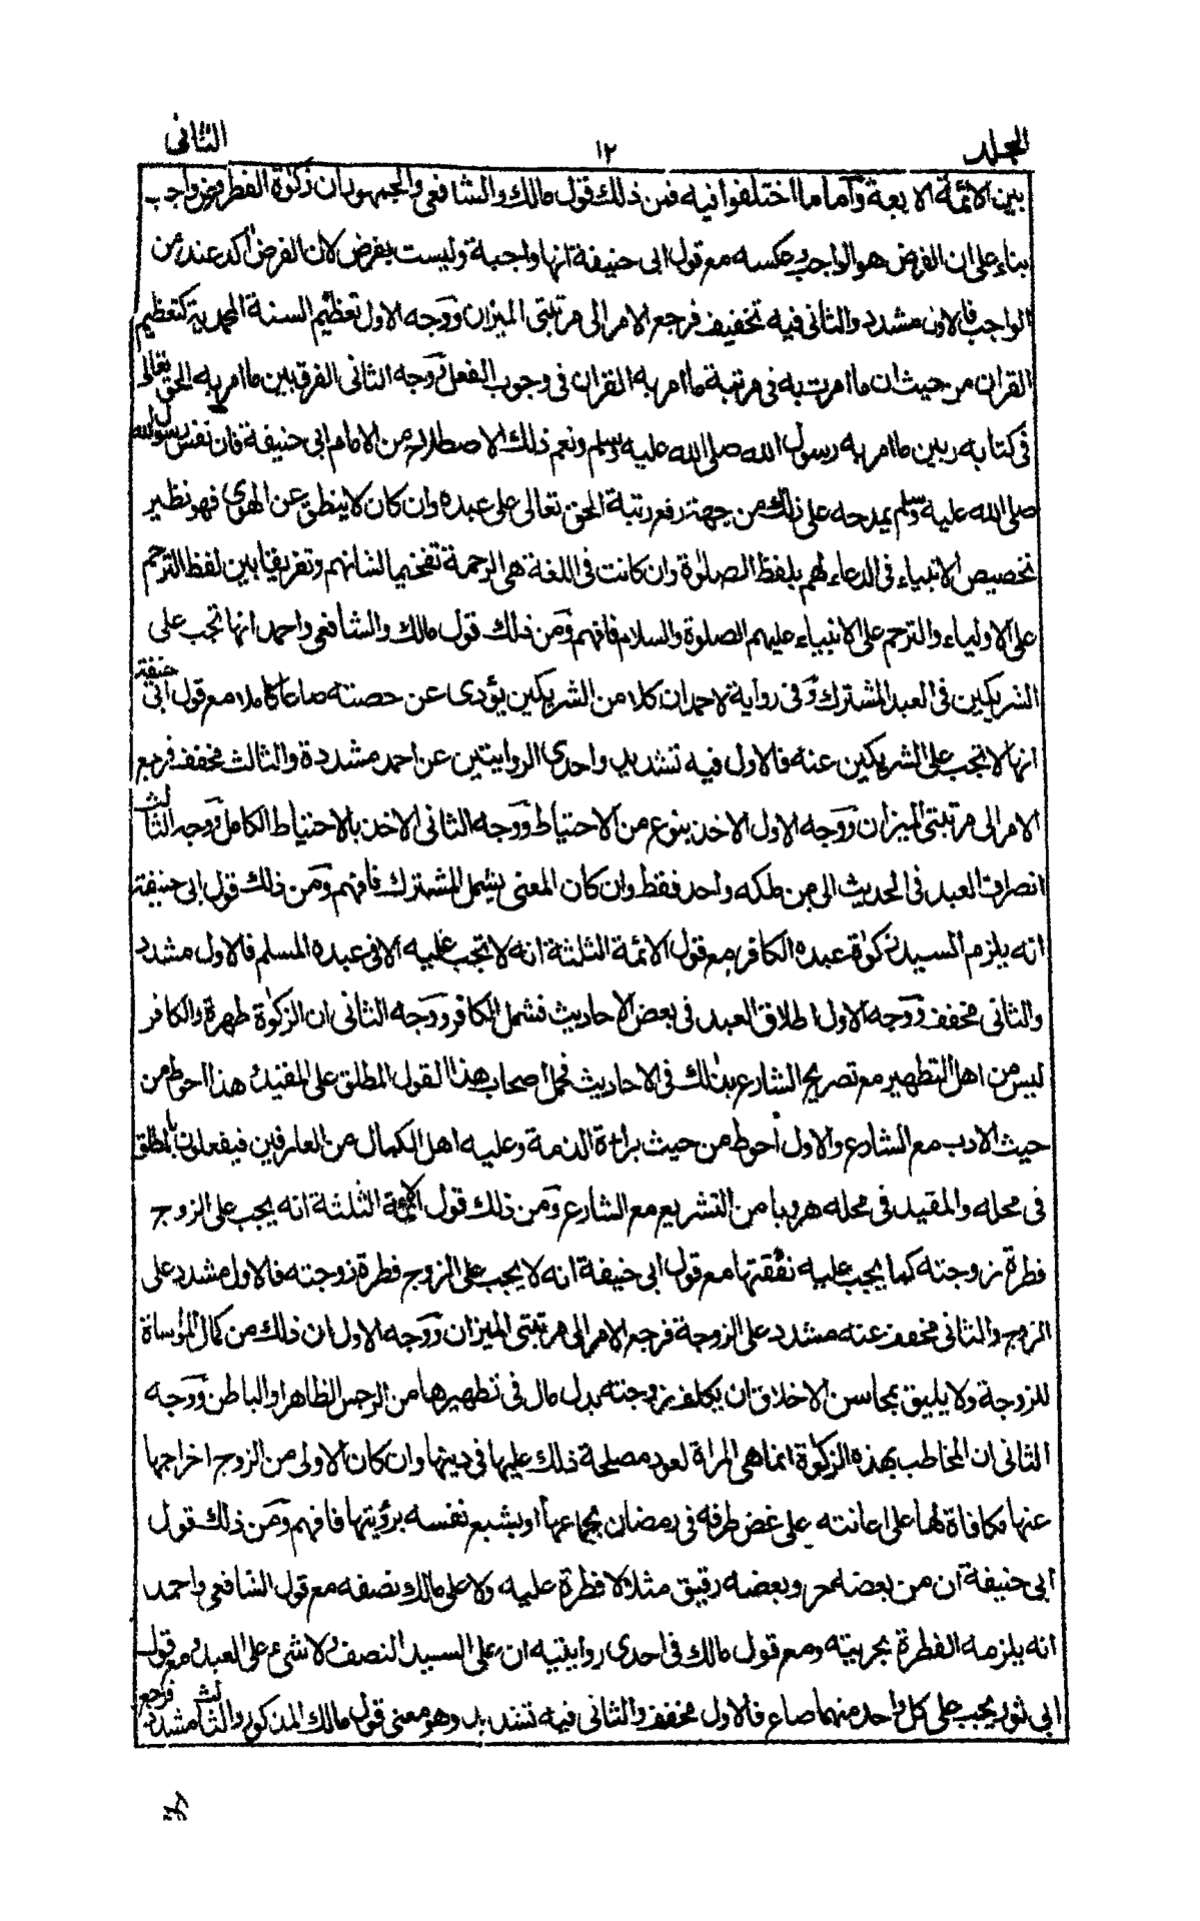 المجلد
١٢
الثانى
بين الائمة الاربعة وآما ما اختلفوا فيه فمن ذلك قول مالك والشافعى والجمهور ان زكوة الفطر فرض واجب
بناء على ان الفرض هو الواجب وعكسه مع قول ابى حنيفة انها واجبة وليست بفرض لان الفرض آكد عنده من
الواجب فالاول مشدد والثانى فيه تخفيف فرجع الامر الى مرتبتى الميزان ووجه الاول تعظيم السنة المحمدية كتعظيم
القرآن من حيث ان ما امرت به فى مرتبة ما امر به القرآن فى وجوب الفعل ووجه الثانى الفرق بين ما امر به الحق تعالى
فى كتابه وبين ما امر به رسول الله صلى الله عليه وسلم ونعم ذلك الاصطلاح من الامام ابى حنيفة فان نفس رسول الله
صلى الله عليه وسلم يمدحه على ذلك من جهة رفع رتبة الحق تعالى على عبده وان كان لا ينطق عن الهوى فهو نظير
تخصيص الانبياء فى الدعاء لهم بلفظ الصلوة وان كانت فى اللغة هى الرحمة تفخيما لشانهم وتفريقا بين لفظ الترحم
على الاولياء والترحم على الانبياء عليهم الصلوة والسلام فافهم ومن ذلك قول مالك والشافعى واحمد انها تجب على
الشريكين فى العبد المشترك وفى رواية لاحمد ان كلا من الشريكين يؤدى عن حصته صاعا كاملا مع قول ابى حنيفة
انها لا تجب على الشريكين عنه فالاول فيه تشديد واحدى الروايتين عن احمد مشددة والثالث مخفف فرجع
الامر الى مرتبتى الميزان ووجه الاول الاخذ بنوع من الاحتياط ووجه الثانى الاخذ بالاحتياط الكامل ووجه الثالث
انصراف العبد فى الحديث الى من ملكه واحد فقط وان كان المعنى يشمل المشترك فافهم ومن ذلك قول ابى حنيفة
انه يلزم السيد زكوة عبده الكافر مع قول الائمة الثلثة انه لا تجب عليه الا فى عبده المسلم فالاول مشدد
والثانى مخفف ووجه الاول اطلاق العبد فى بعض الاحاديث فشمل الكافر ووجه الثانى ان الزكوة طهرة والكافر
ليس من اهل التطهير مع تصريح الشارع بذلك فى الاحاديث فحمل اصحاب هذا القول المطلق على المقيد وهذا احوط من
حيث الادب مع الشارع والاول أحوط من حيث براءة الذمة وعليه اهل الكمال من العارفين فيفعلون بالمطلق
فى محله والمقيد فى محله هروبا من التشريع مع الشارع ومن ذلك قول الائمة الثلثة انه يجب على الزوج
فطرة زوجته كما يجب عليه نفقتها مع قول ابى حنيفة انه لا يجب على الزوج فطرة زوجته فالاول مشدد على
الزوج والثانى مخفف عنه مشدد على الزوجة فرجع الامر الى مرتبتى الميزان ووجه الاول ان ذلك من كمال المواساة
للزوجة ولا يليق بمحاسن الاخلاق ان يكلف زوجته ببدل مال فى تطهيرها من الرجس الظاهر او الباطن ووجه
الثانى ان المخاطب بهذه الزكوة انما هى المراة لعود مصلحة ذلك عليها فى دينها وان كان الاولى من الزوج اخراجها
عنها مكافاة لها على اعانته على غض طرفه فى رمضان بجماعها او يشبع نفسه برؤيتها فافهم ومن ذلك قول
ابى حنيفة ان من بعضه حر وبعضه رقيق مثلا لا فطرة عليه ولا على مالك نصفه مع قول الشافعى واحمد
انه يلزمه الفطرة بحريته ومع قول مالك فى احدى روايتيه ان على السيد النصف ولا شئ على العبد ومع قول
ابى ثور يجب على كل واحد منهما صاع فالاول مخفف والثانى فيه تشديد وهو معنى قول مالك المذكور والثالث مشدد فرجع